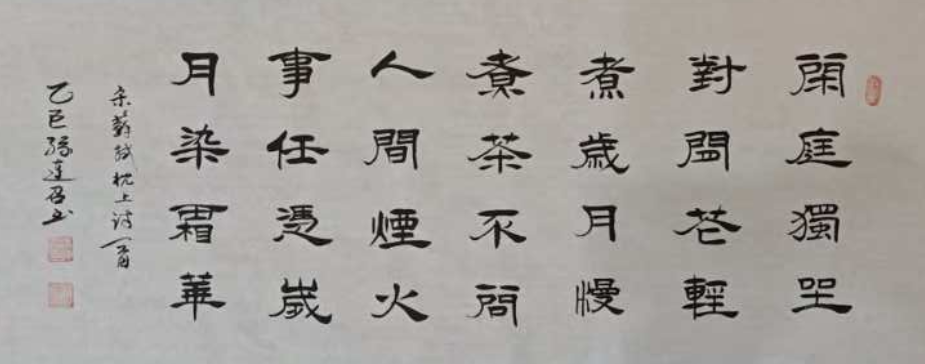 閑庭獨坐
對閒花輕
煮歲月慢
煑茶不問
人間煙火
事任憑歲
月染霜華
宋蘇軾枕上詩一首
乙巳 達 書